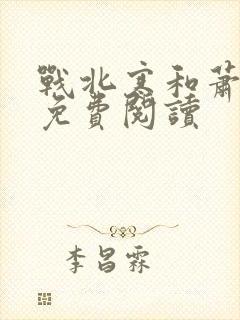 戰北寒和蕭
免費閱讀
李昌霖